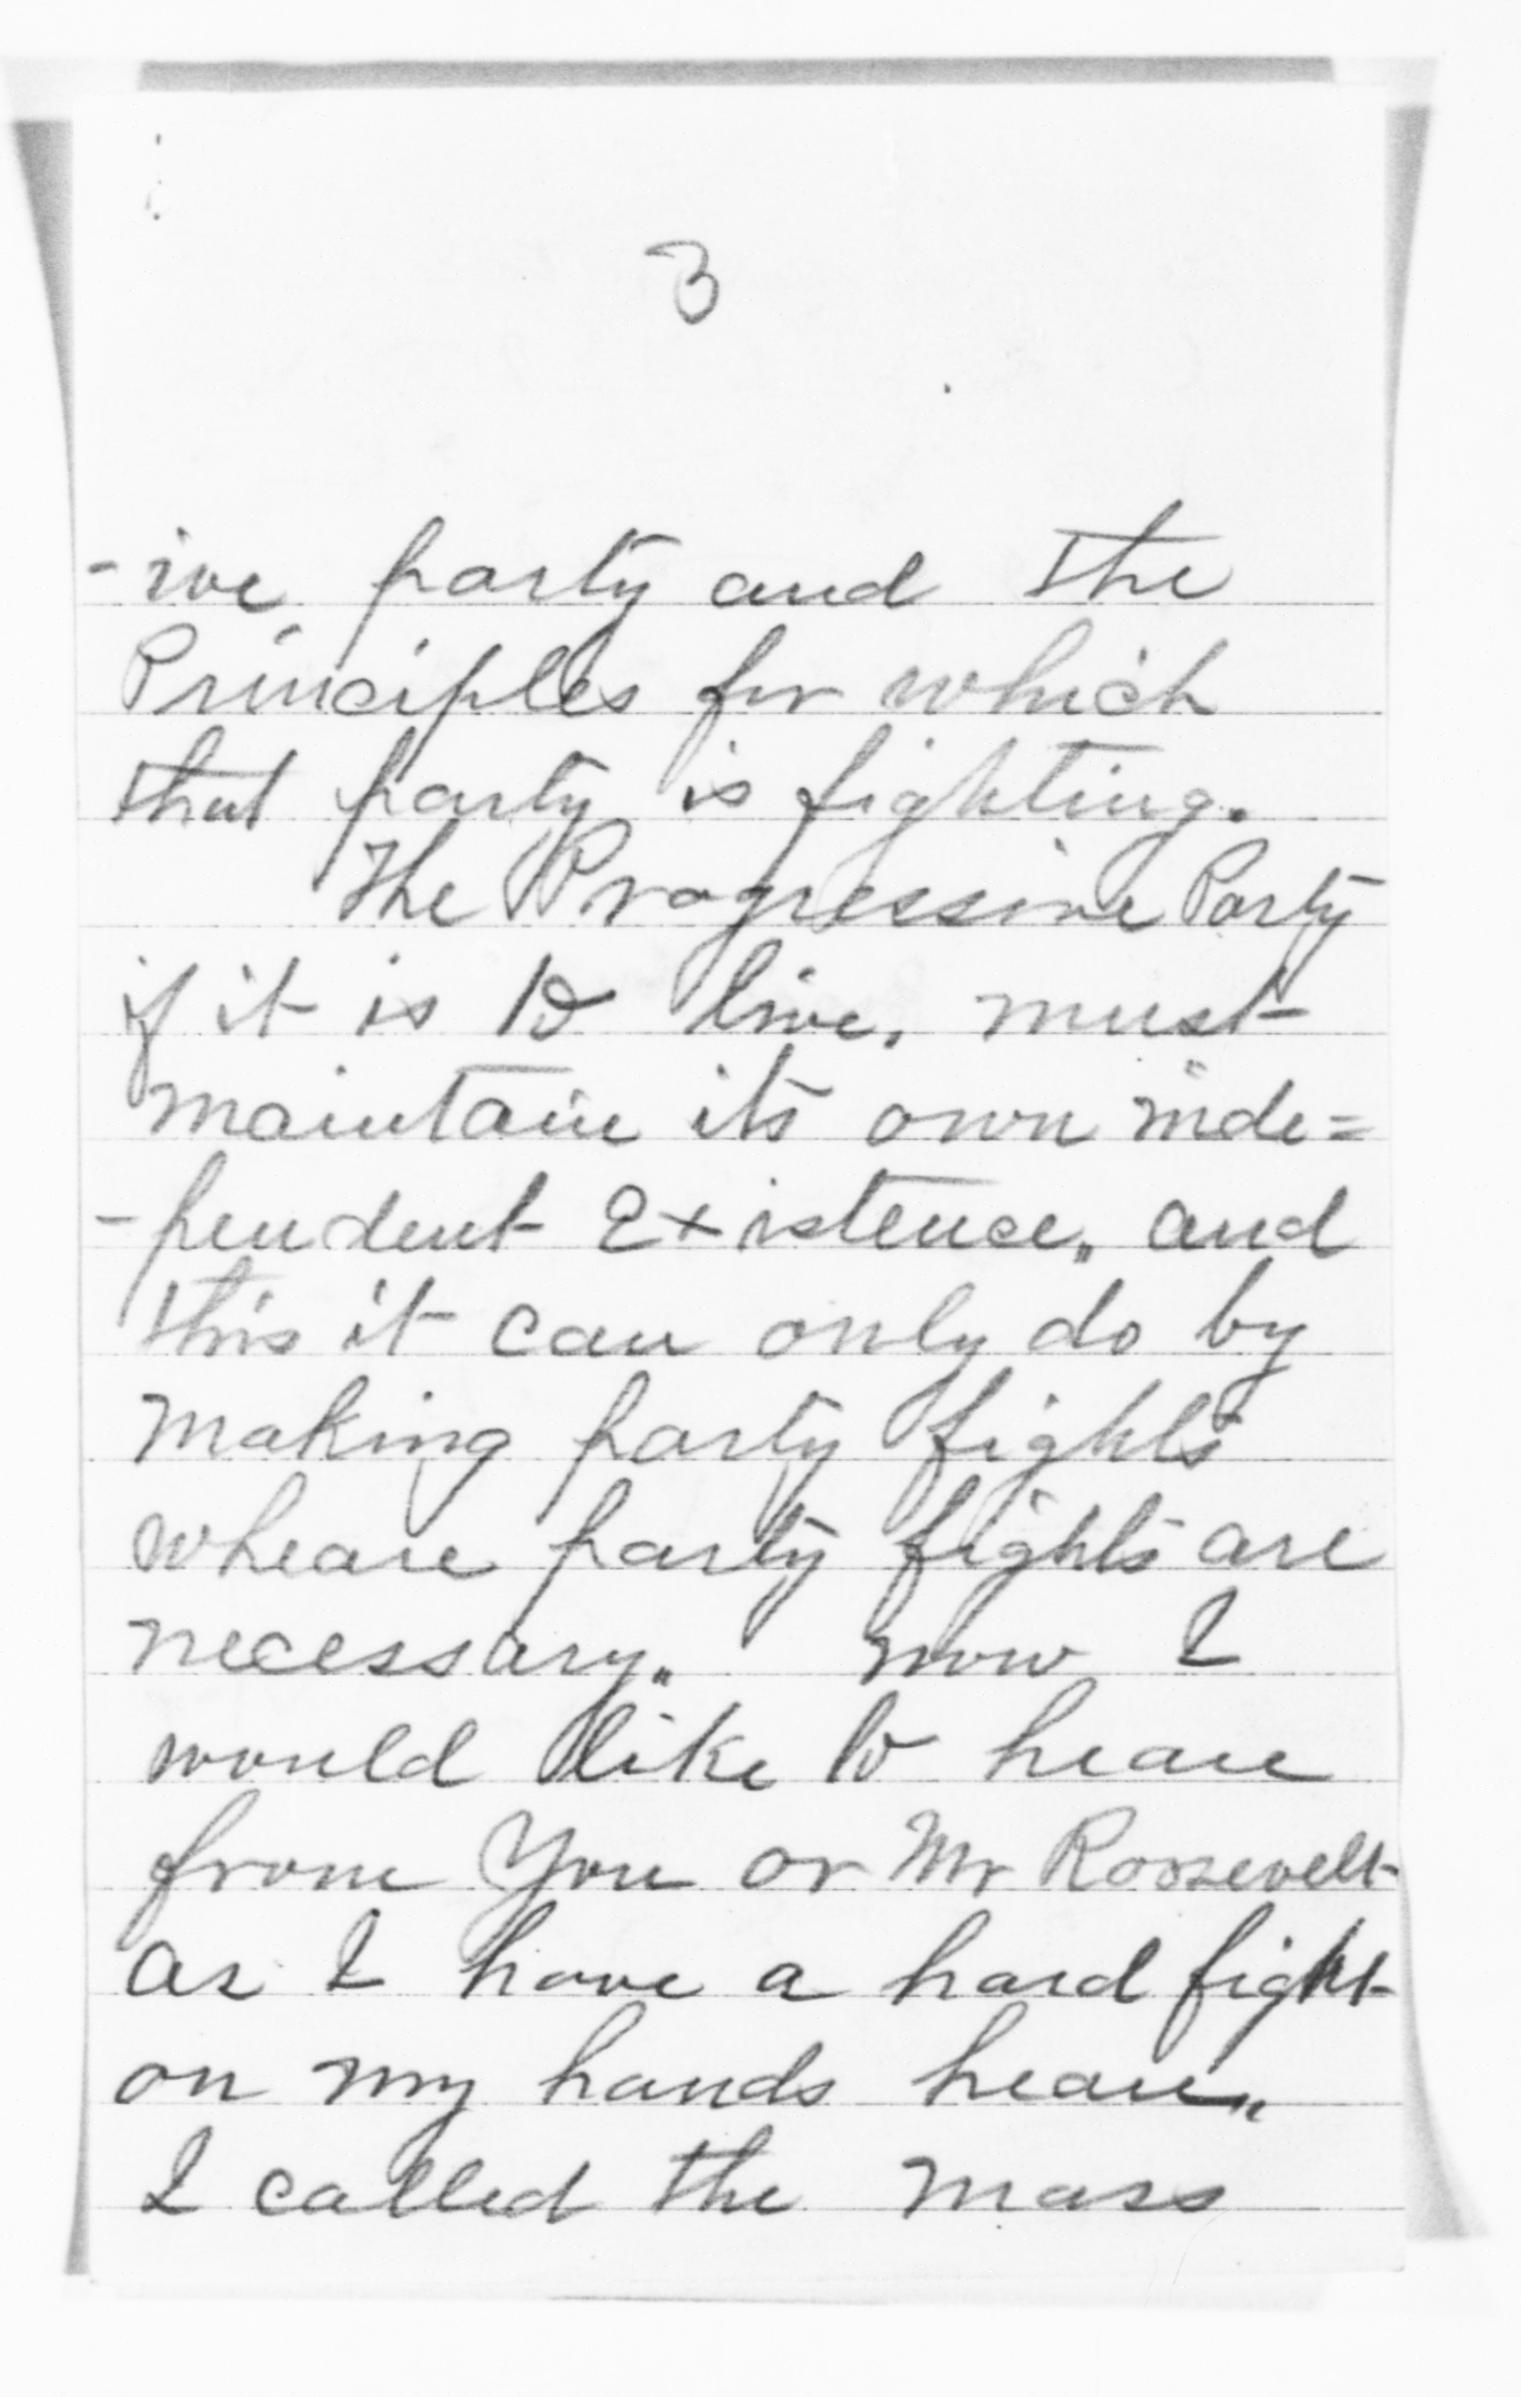 3
-ive party and the
Principles for which
that party is fighting.
The Progressive Party
if it is to live, must
maintain its own inde=
-pendent Existence,, and
this it can only do by
making party fights
wheare party fights are
necessary,, now I
would like to heare
from You or Mr Roosevelt
as I have a hard fight
on my hands heare,,
I called the mass